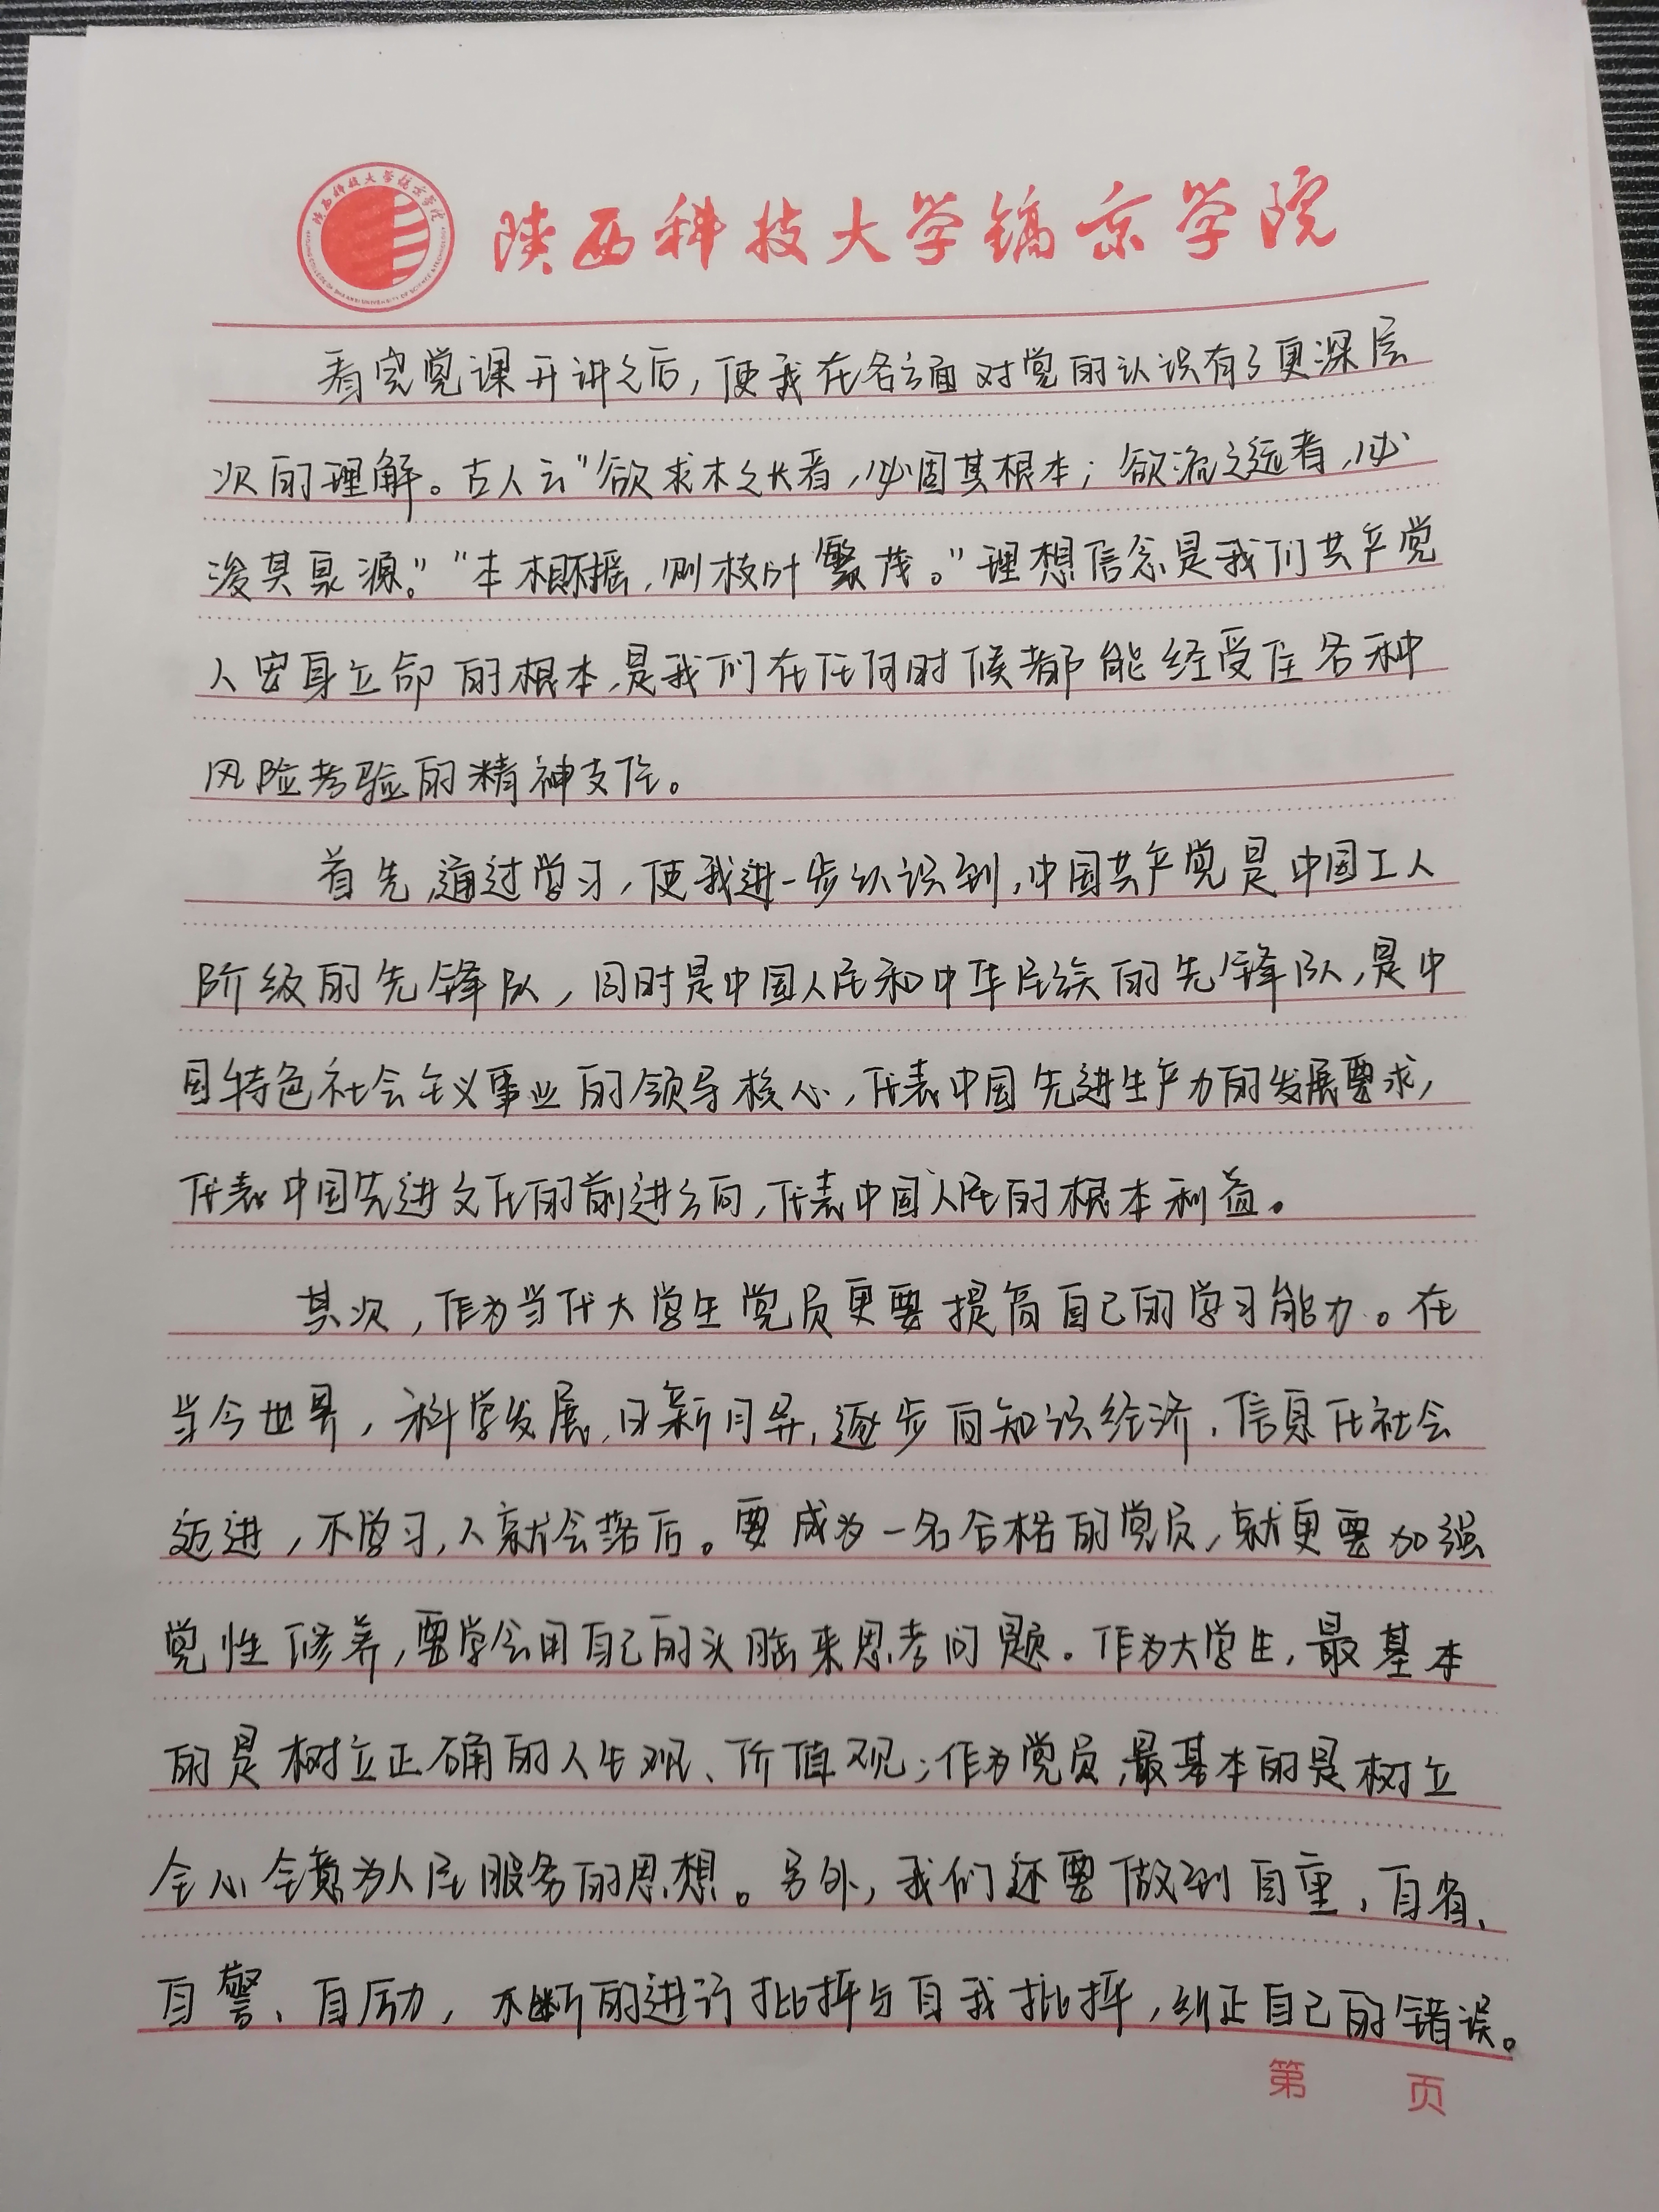 陕西科技大学镐京学院
陕西科技大学镐京学院
看完党课开讲之后,使我在各方面对党的认识有了更深层
次的理解。古人云"欲求木之长者,必固其根本;欲流之远者,必
浚其泉源。""本根不摇,则枝叶繁茂。"理想信念是我们共产党
人安身立命的根本,是我们在任何时候都能经受住各种
风险考验的精神支住。
首先,通过学习,使我进一步认识到,中国共产党是中国工人
阶级的先锋队,同时是中国人民和中华民族的先锋队,是中
国特色社会主义事业的领导核心,代表中国先进生产力的发展要求,
代表中国先进文化的前进方向,代表中国人民的根本利益。
其次,作为当代大学生党员更要提高自己的学习能力。在
当今世界,科学发展,日新月异,逐步向知识经济,信息化社会
迈进,不学习,人就会落后。要成为一名合格的党员,就更要加强
党性修养,要学会用自己的头脑来思考问题。作为大学生,最基本
的是树立正确的人生观、价值观;作为党员,最基本的是树立
全心全意为人民服务的思想。另外,我们还要做到自重,自省、
自警、自励,不断的进行批评与自我批评,纠正自己的错误。
第 页